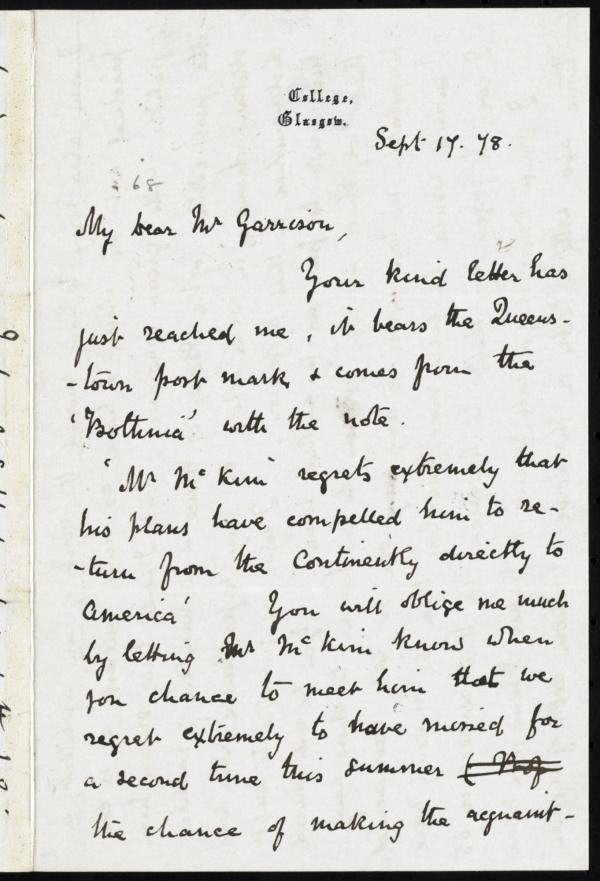 College,
Glasgow.
Sept 17. 78.
68
My dear Mr Garrison,
Your kind letter has
just reached me, it bears the Queens-
-town post mark, & comes from the
'Bothnia' with the note.
'Mr McKim regrets extremely that
his plans have compelled him to re-
-turn from the Continent directly to
America' You will oblige me much
by letting Mr McKim know when
you chance to meet him that we
regret extremely to have missed for
a second time this summer
the chance of making the acquaint-